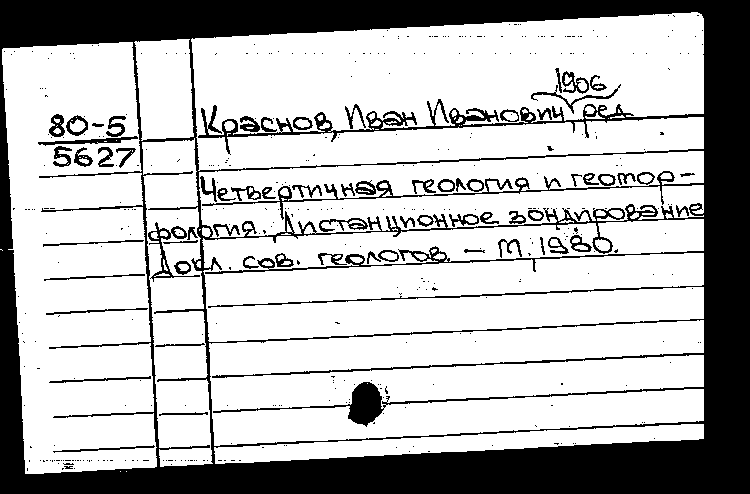 1906
80-5
5627
Краснов, Иван Иванович, ред
Четвертичная геология и геомор-
фология. Дистанционное зондирование
Докл. сов. геологов. – М., 1980.